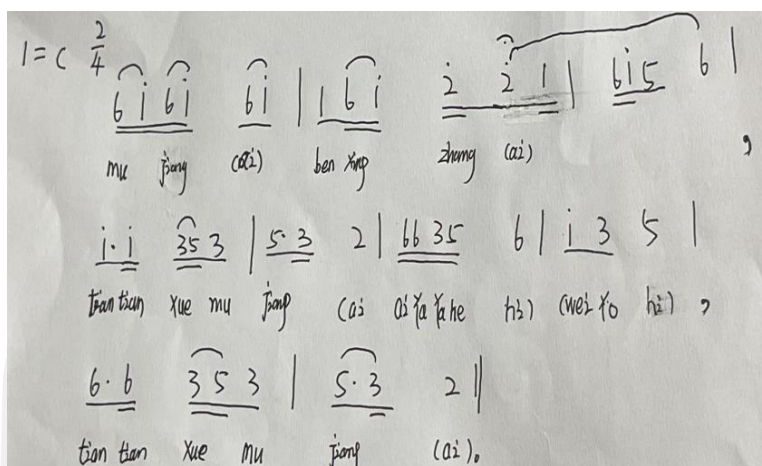 1=C 2/4
6 i 6 i 6 i | 1 6 i 2̇ 2̇ 1 | 6 i 5 6 |
mu jiang (ai) ben xing zhang (ai) ,
i · i 3 5 3 | 5 · 3 2 | 6 6 3 5 6 | i 3 5 |
tian tian xue mu jiang (ai ai ya ya he hi) (wei yo hi) ,
6 · 6 3 5 3 | 5 · 3 2 ‖
tian tian xue mu jiang (ai)。